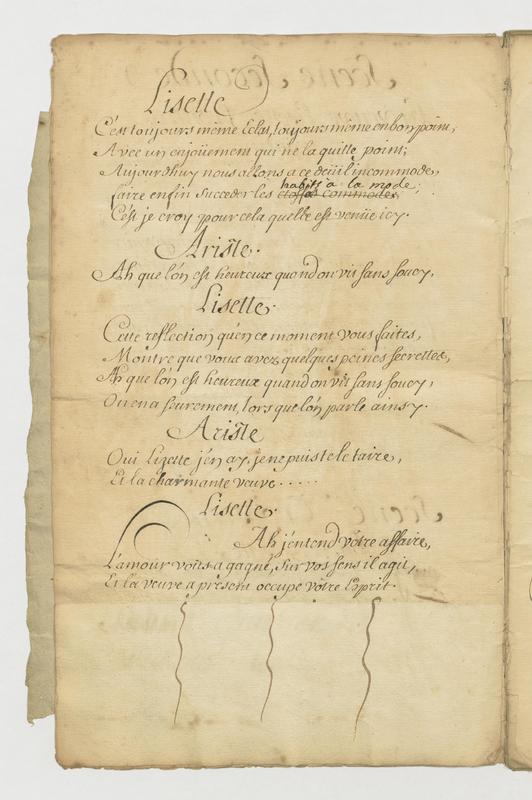 Lisette
C'est toujours même Eclat, toujours même enbonpoint,
Avec un enjoüement qui ne la quitte point;
Aujourdhuy nous allons a ce deüil incommode,
habits à la mode;
faire enfin succeder les etoffes commodes,
C'est je croy pour cela quelle est venüe icy.
Ariste.
Ah que l'on est heureux quand on vit sans soucy,
Lisette.
Cette reflection qu'en ce moment vous faites,
Montre que vous avez quelques peines secrettes,
Ah que l'on est heureux quand on vit sans soucy,
On en a seurement, lors que l'on parle ainsy.
Ariste
Oui Lizette j'en ay, je ne puis te le taire,
Et la charmante veuve . . . . .
Lisette.
Ah j'entend vôtre affaire,
L'amour vous a gagné, sur vos sens il agit,
Et la veuve a present occupe vôtre Esprit.